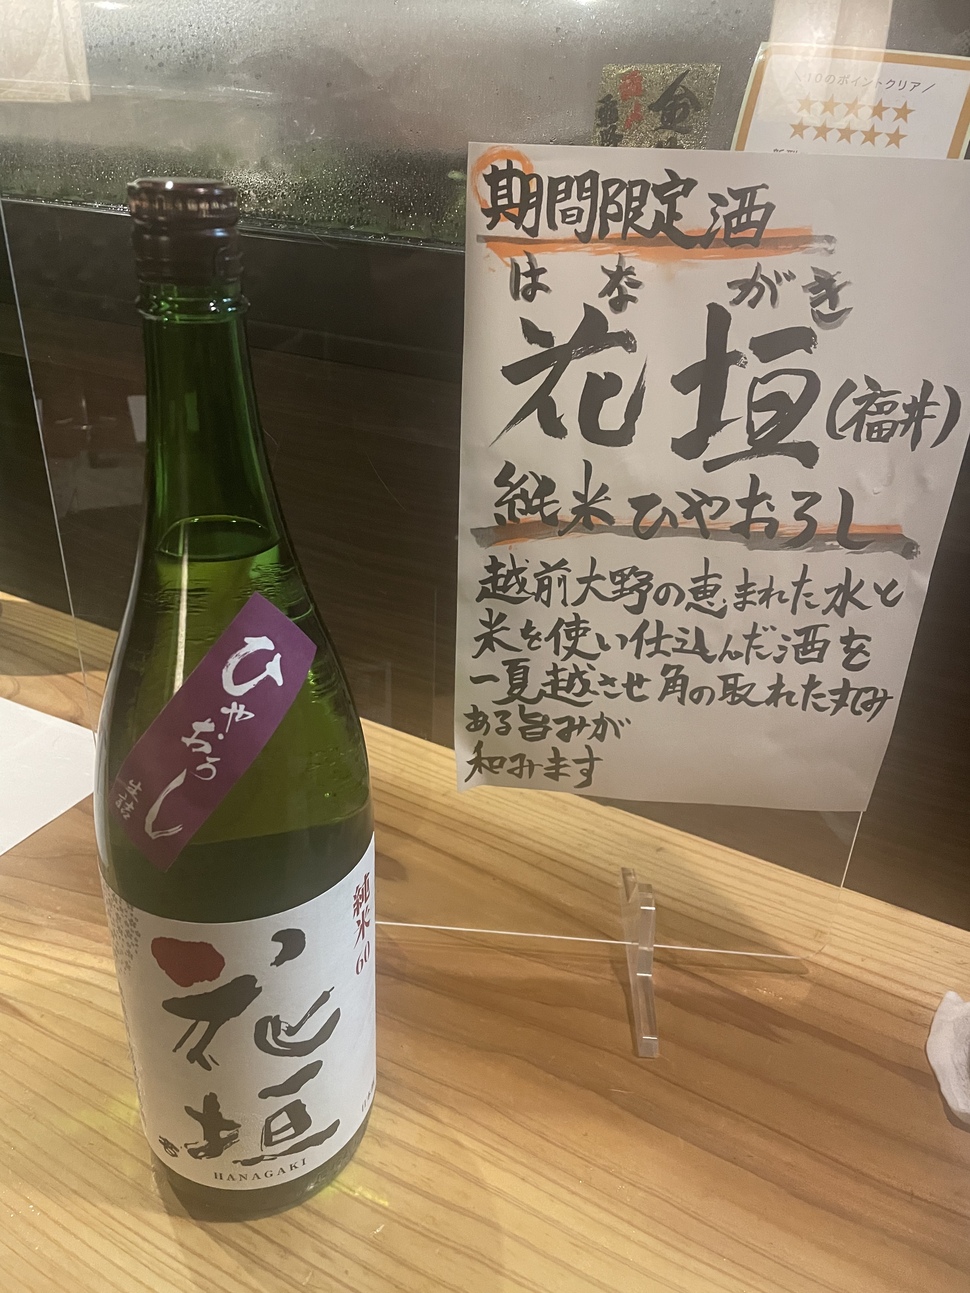 10のポイントクリア
期間限定酒
はながき
花垣(福井)
純米ひやおろし
越前大野の恵まれた水と
米を使い仕込んだ酒を
一夏越させ角の取れた丸み
ある旨みが
和みます
ひやおろし
生詰
純米60
花垣
HANAGAKI